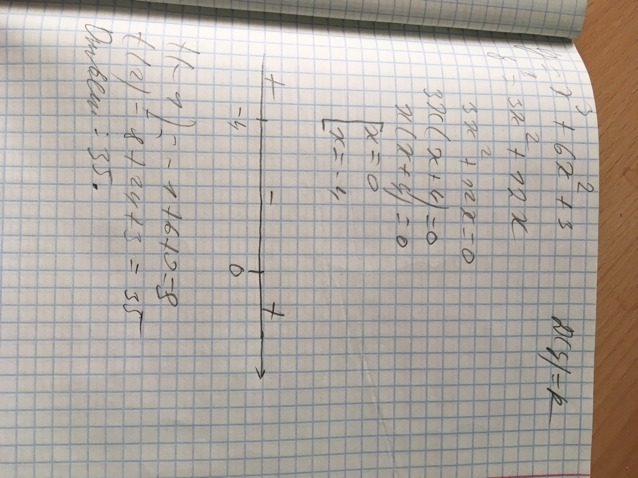 y = x³ + 6x² + 3
D(y) = R
y' = 3x² + 12x
3x² + 12x = 0
3x(x+4) = 0
x(x+4) = 0
[x = 0
[x = -4
+ -4 - 0 +
f(-1) = -1+6+3=8
f(2) = 8+24+3 = 35
Ответ: 35.